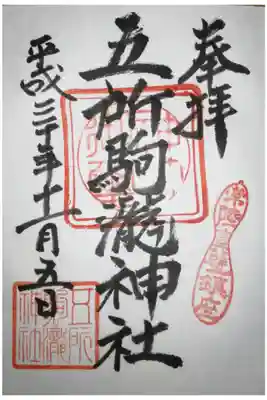 奉拝
五所駒瀧神社
平成三十年十一月五日
五所
駒瀧
神社